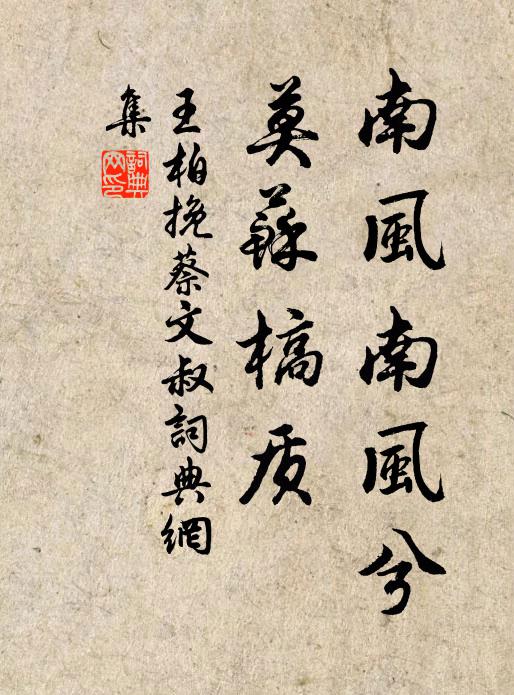 南風南風兮
莫蘇槁质
王柏挽蔡文叔詞典網
集
詞典
网印